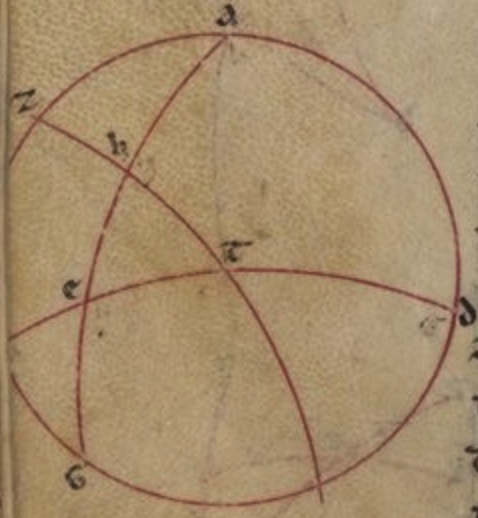 a
z
h
t
e
d
G